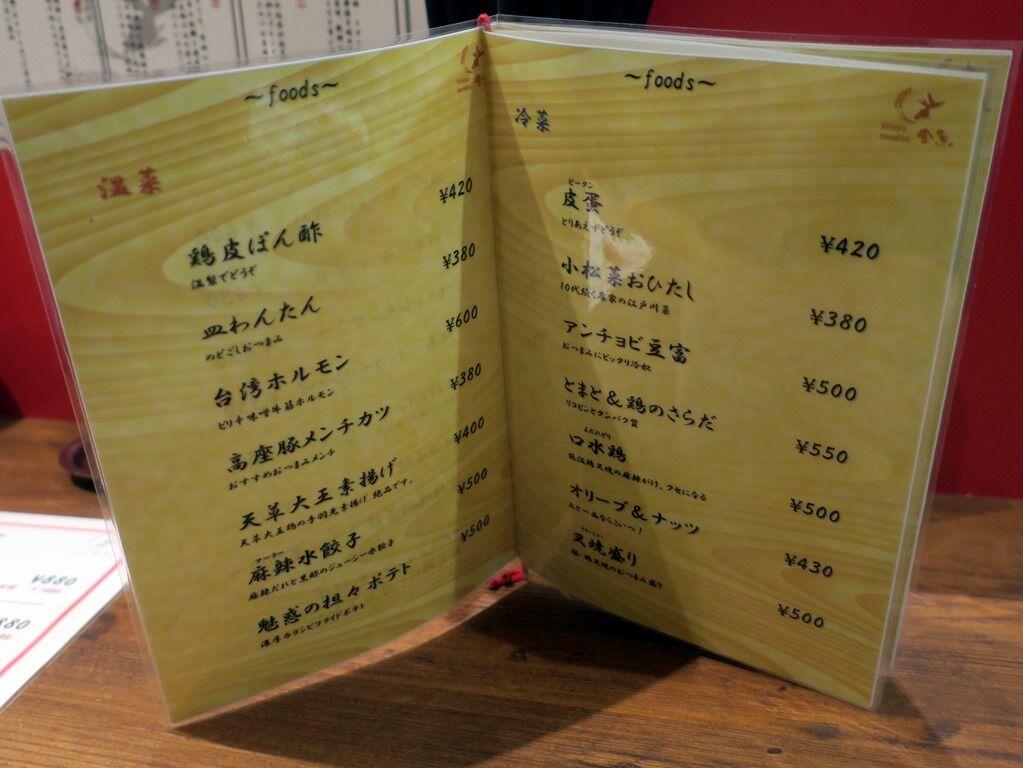 ~foods~
温菜
鶏皮ぽん酢 ¥420
温製でどうぞ
皿わんたん ¥380
のどごしおつまみ
台湾ホルモン ¥600
ピリ辛味噌牛筋ホルモン
高座豚メンチカツ ¥380
おすすめおつまみメンチ
天草大王素揚げ ¥400
天草大王鶏の手羽先素揚げ 絶品です。
マーラー
麻辣水餃子 ¥500
麻辣だれと黒酢のジューシー水餃子
魅惑の担々ポテト ¥500
濃厚
フライドポテト
~foods~
冷菜
ピータン
皮蛋 ¥420
とりあえずどうぞ
小松菜おひたし ¥380
10代続く農家の江戸川菜
アンチョビ豆富 ¥500
おつまみにピッタリ冷奴
とまと&鶏のさらだ ¥550
リコピンとタンパク質
よだれどり
口水鶏 ¥500
低温鶏叉焼の麻辣がけ、クセになる
オリーブ&ナッツ ¥430
あと一品ならこいつ!
叉焼盛り ¥500
豚、鶏叉焼のおつまみ盛り
¥880